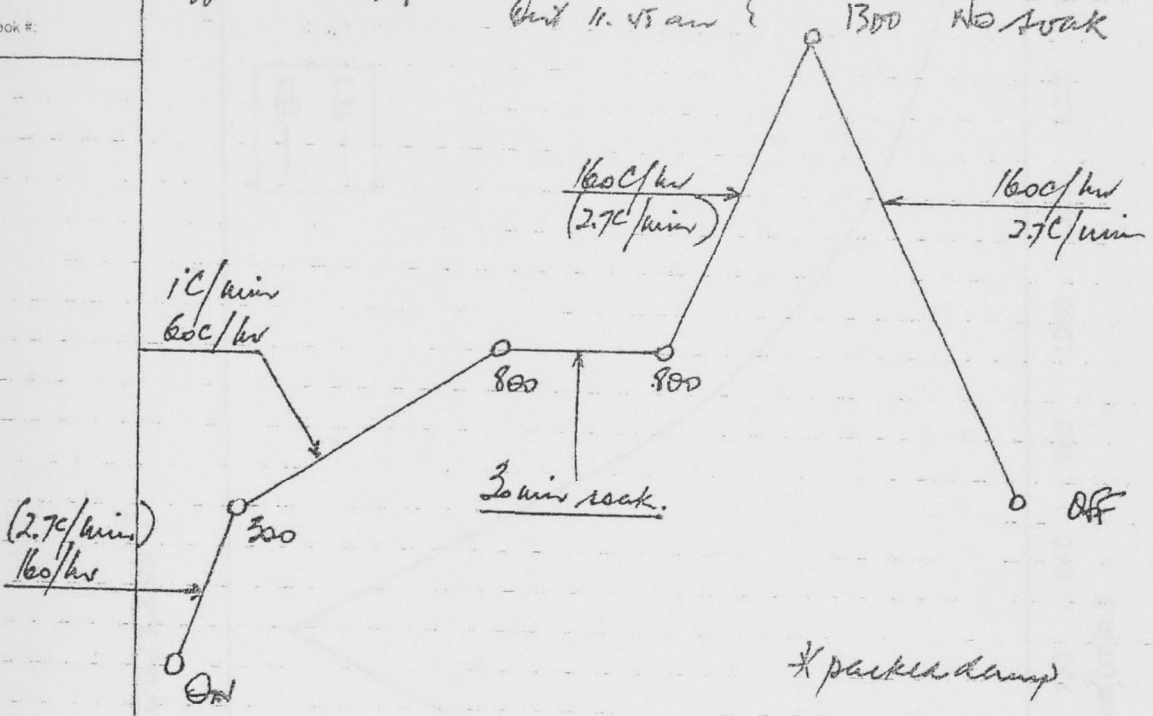 ook #:
1300 No soak
160C/hr
(2.7C/min)
160C/hr
2.7C/min
1C/min
60C/hr
800
800
30min soak.
(2.7C/min)
160/hr
300
OFF
ON
* packed damp